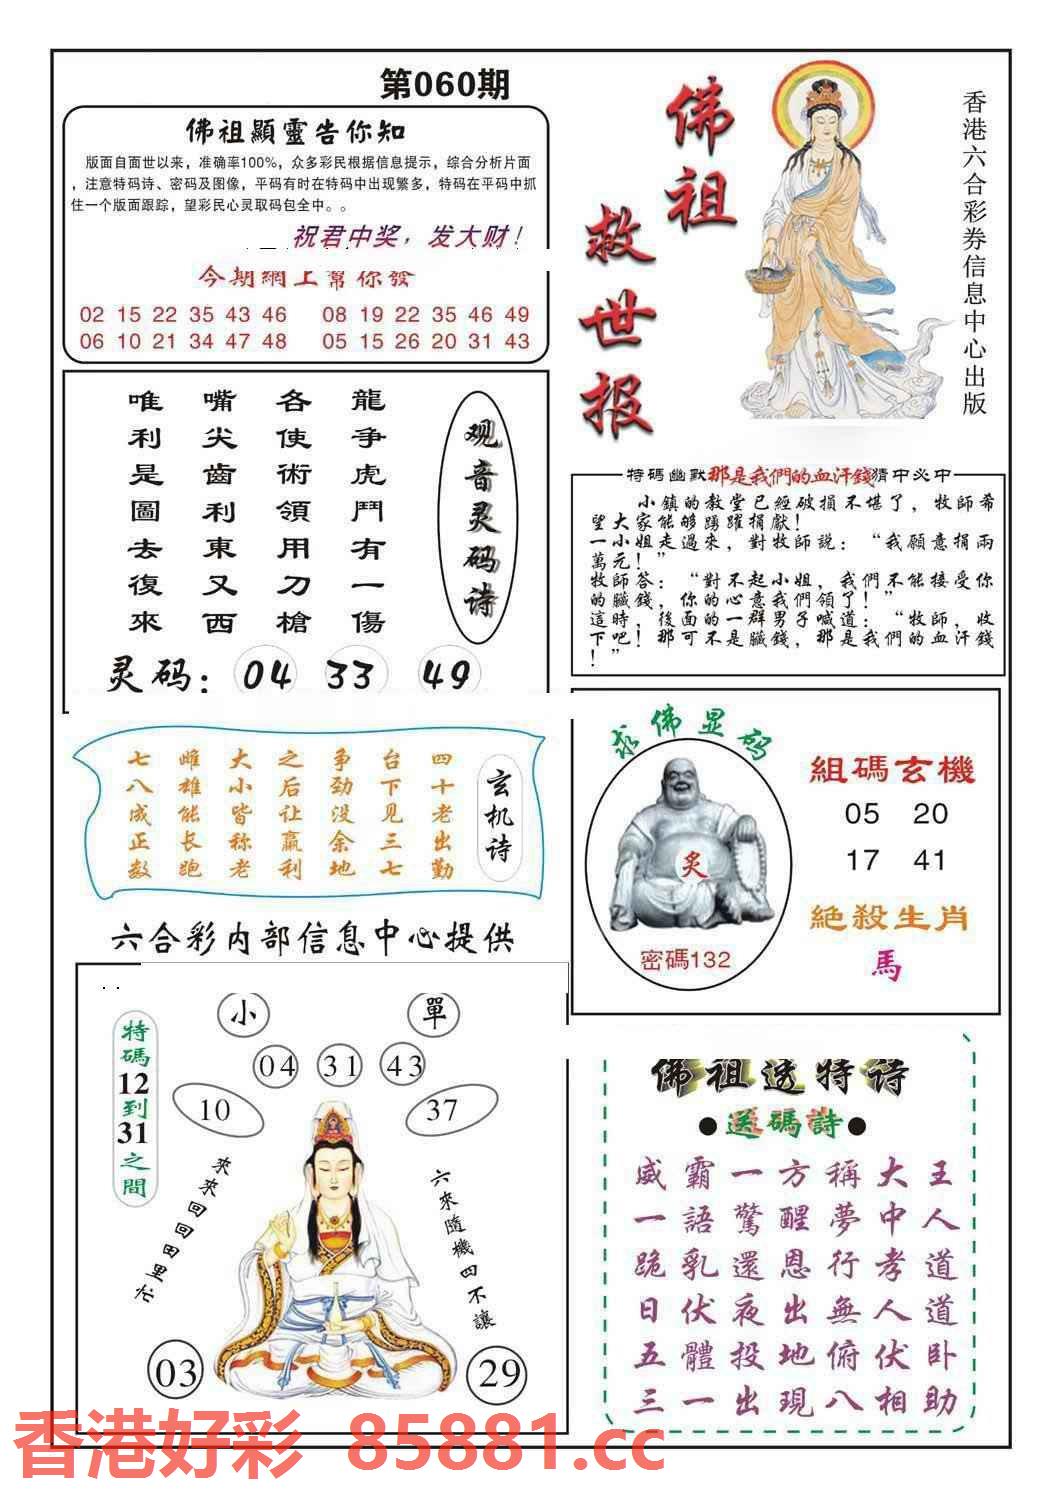 第060期
佛祖顯靈告你知
版面自面世以来，准确率100%，众多彩民根据信息提示，综合分析片面
，注意特码诗、密码及图像，平码有时在特码中出现繁多，特码在平码中抓
住一个版面跟踪，望彩民心灵取码包全中。。
祝君中奖，发大财！
今期網上幫你發
02 15 22 35 43 46 08 19 22 35 46 49
06 10 21 34 47 48 05 15 26 20 31 43
佛祖
救世报
香港六合彩券信息中心出版
观音灵码诗
龍争虎鬥有一傷
各使術領用刀槍
嘴尖齒利東又西
唯利是圖去復來
灵码：04 33 49
特碼幽默那是我們的血汗錢猜中必中
小鎮的教堂已經破損不堪了，牧師希
望大家能够踴躍捐獻！
一小姐走過來，對牧師説：“我願意捐兩
萬元！”
牧師答：“對不起小姐，我們不能接受你
的臟錢，你的心意我們領了！”
這時，後面的一群男子喊道：“牧師，收
下吧！那可不是臟錢，那是我們的血汗錢
！”
玄机诗
四十老出勤
台下见三七
争劲没余地
之后让赢利
大小皆称老
雌雄能长跑
七八成正数
求佛显码
炙
密碼132
組碼玄機
05 20
17 41
絕殺生肖
馬
六合彩内部信息中心提供
特碼12到31之間
小 單
04 31 43
10 37
來來回回田里忙
六來隨機四不讓
03 29
佛祖透特诗
●送碼詩●
威霸一方稱大王
一語驚醒夢中人
跪乳還恩行孝道
日伏夜出無人道
五體投地俯伏卧
三一出現八相助
香港好彩 85881.cc